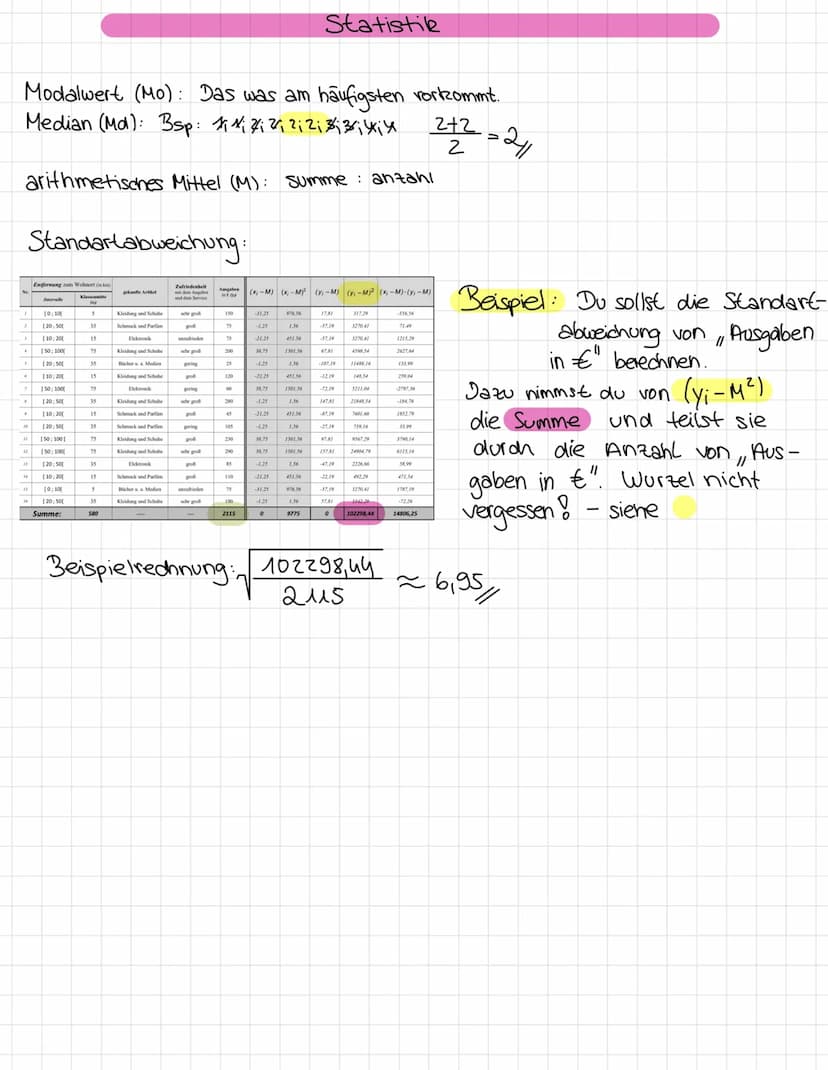 Statistik
Modalwert (Mo): Das was am häufigsten vorkommt.
Median (Md): Bsp: 1; 1; 2; 2; 2; 2; 3; 3; 4; 4 2+2/2 = 2
arithmetisches Mittel (M): summe : anzahl
Standartabweichung:
Nr. Entfernung zum Wohnort (in km) gekaufte Artikel Zufriedenheit mit dem Angebot und dem Service Ausgaben in € (yi) (xi−M) (xi−M)² (yi−M) (yi−M)² (xi−M)·(yi−M)
Intervalle Klassenmitte (xi)
1 [0; 10[ 5 Kleidung und Schuhe sehr groß 150 -31,25 976,56 17,81 317,29 -556,54
2 [20; 50[ 35 Schmuck und Parfüm groß 75 -1,25 1,56 -57,19 3270,41 71,49
3 [10; 20[ 15 Elektronik unzufrieden 75 -21,25 451,56 -57,19 3270,41 1215,29
4 [50; 100[ 75 Kleidung und Schuhe sehr groß 200 38,75 1501,56 67,81 4598,54 2627,64
5 [20; 50[ 35 Bücher u. a. Medien gering 25 -1,25 1,56 -107,19 11489,16 133,99
6 [10; 20[ 15 Kleidung und Schuhe groß 120 -21,25 451,56 -12,19 148,54 259,04
7 [50; 100[ 75 Elektronik gering 60 38,75 1501,56 -72,19 5211,04 -2797,36
8 [20; 50[ 35 Kleidung und Schuhe sehr groß 280 -1,25 1,56 147,81 21848,54 -184,76
9 [10; 20[ 15 Schmuck und Parfüm groß 45 -21,25 451,56 -87,19 7601,66 1852,79
10 [20; 50[ 35 Schmuck und Parfüm gering 105 -1,25 1,56 -27,19 739,16 33,99
11 [50; 100[ 75 Kleidung und Schuhe groß 230 38,75 1501,56 97,81 9567,29 3790,14
12 [50; 100[ 75 Kleidung und Schuhe sehr groß 290 38,75 1501,56 157,81 24904,79 6115,14
13 [20; 50[ 35 Elektronik groß 85 -1,25 1,56 -47,19 2226,66 58,99
14 [10; 20[ 15 Schmuck und Parfüm groß 110 -21,25 451,56 -22,19 492,29 471,54
15 [0; 10[ 5 Bücher u. a. Medien unzufrieden 75 -31,25 976,56 -57,19 3270,41 1787,19
16 [20; 50[ 35 Kleidung und Schuhe sehr groß 190 -1,25 1,56 57,81 3342,29 -72,26
Summe: 580 — — 2115 0 9775 0 102298,44 14806,25
Beispiel: Du sollst die Standart-
abweichung von „Ausgaben
in €" berechnen.
Dazu nimmst du von (yi−M²)
die Summe und teilst sie
durch die Anzahl von „Aus-
gaben in €". Wurzel nicht
vergessen! - siehe
Beispielrechnung: √102298,44/2115 ≈ 6,95